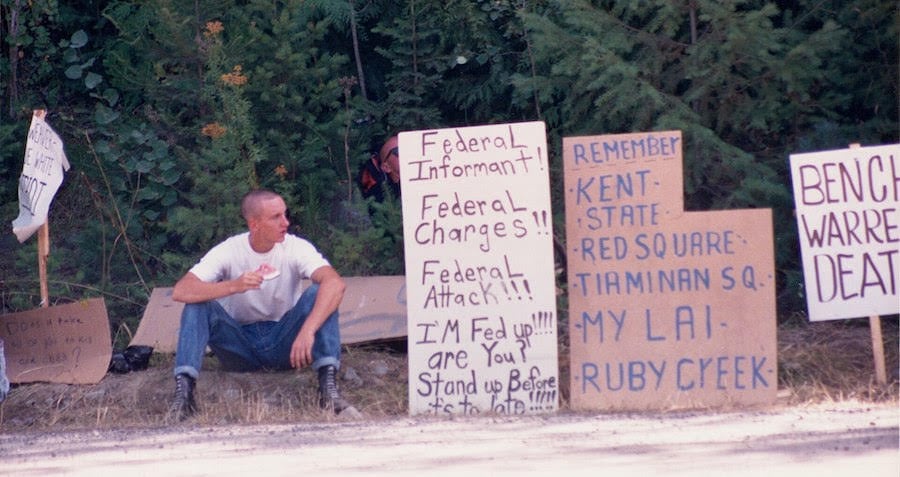 WHITE
Does it take
Federal
Informant!
Federal
Charges!!
Federal
Attack!!!
I'M Fed up!!!!
are You?
Stand up Before
it's to late!!!!!
REMEMBER
·KENT·
·STATE·
·RED SQUARE·
·TIAMINAN SQ.·
·MY LAI·
·RUBY CREEK·
BENCH
WARRE
DEAT